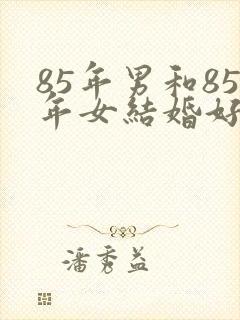 85年男和85
年女結婚好
潘秀益